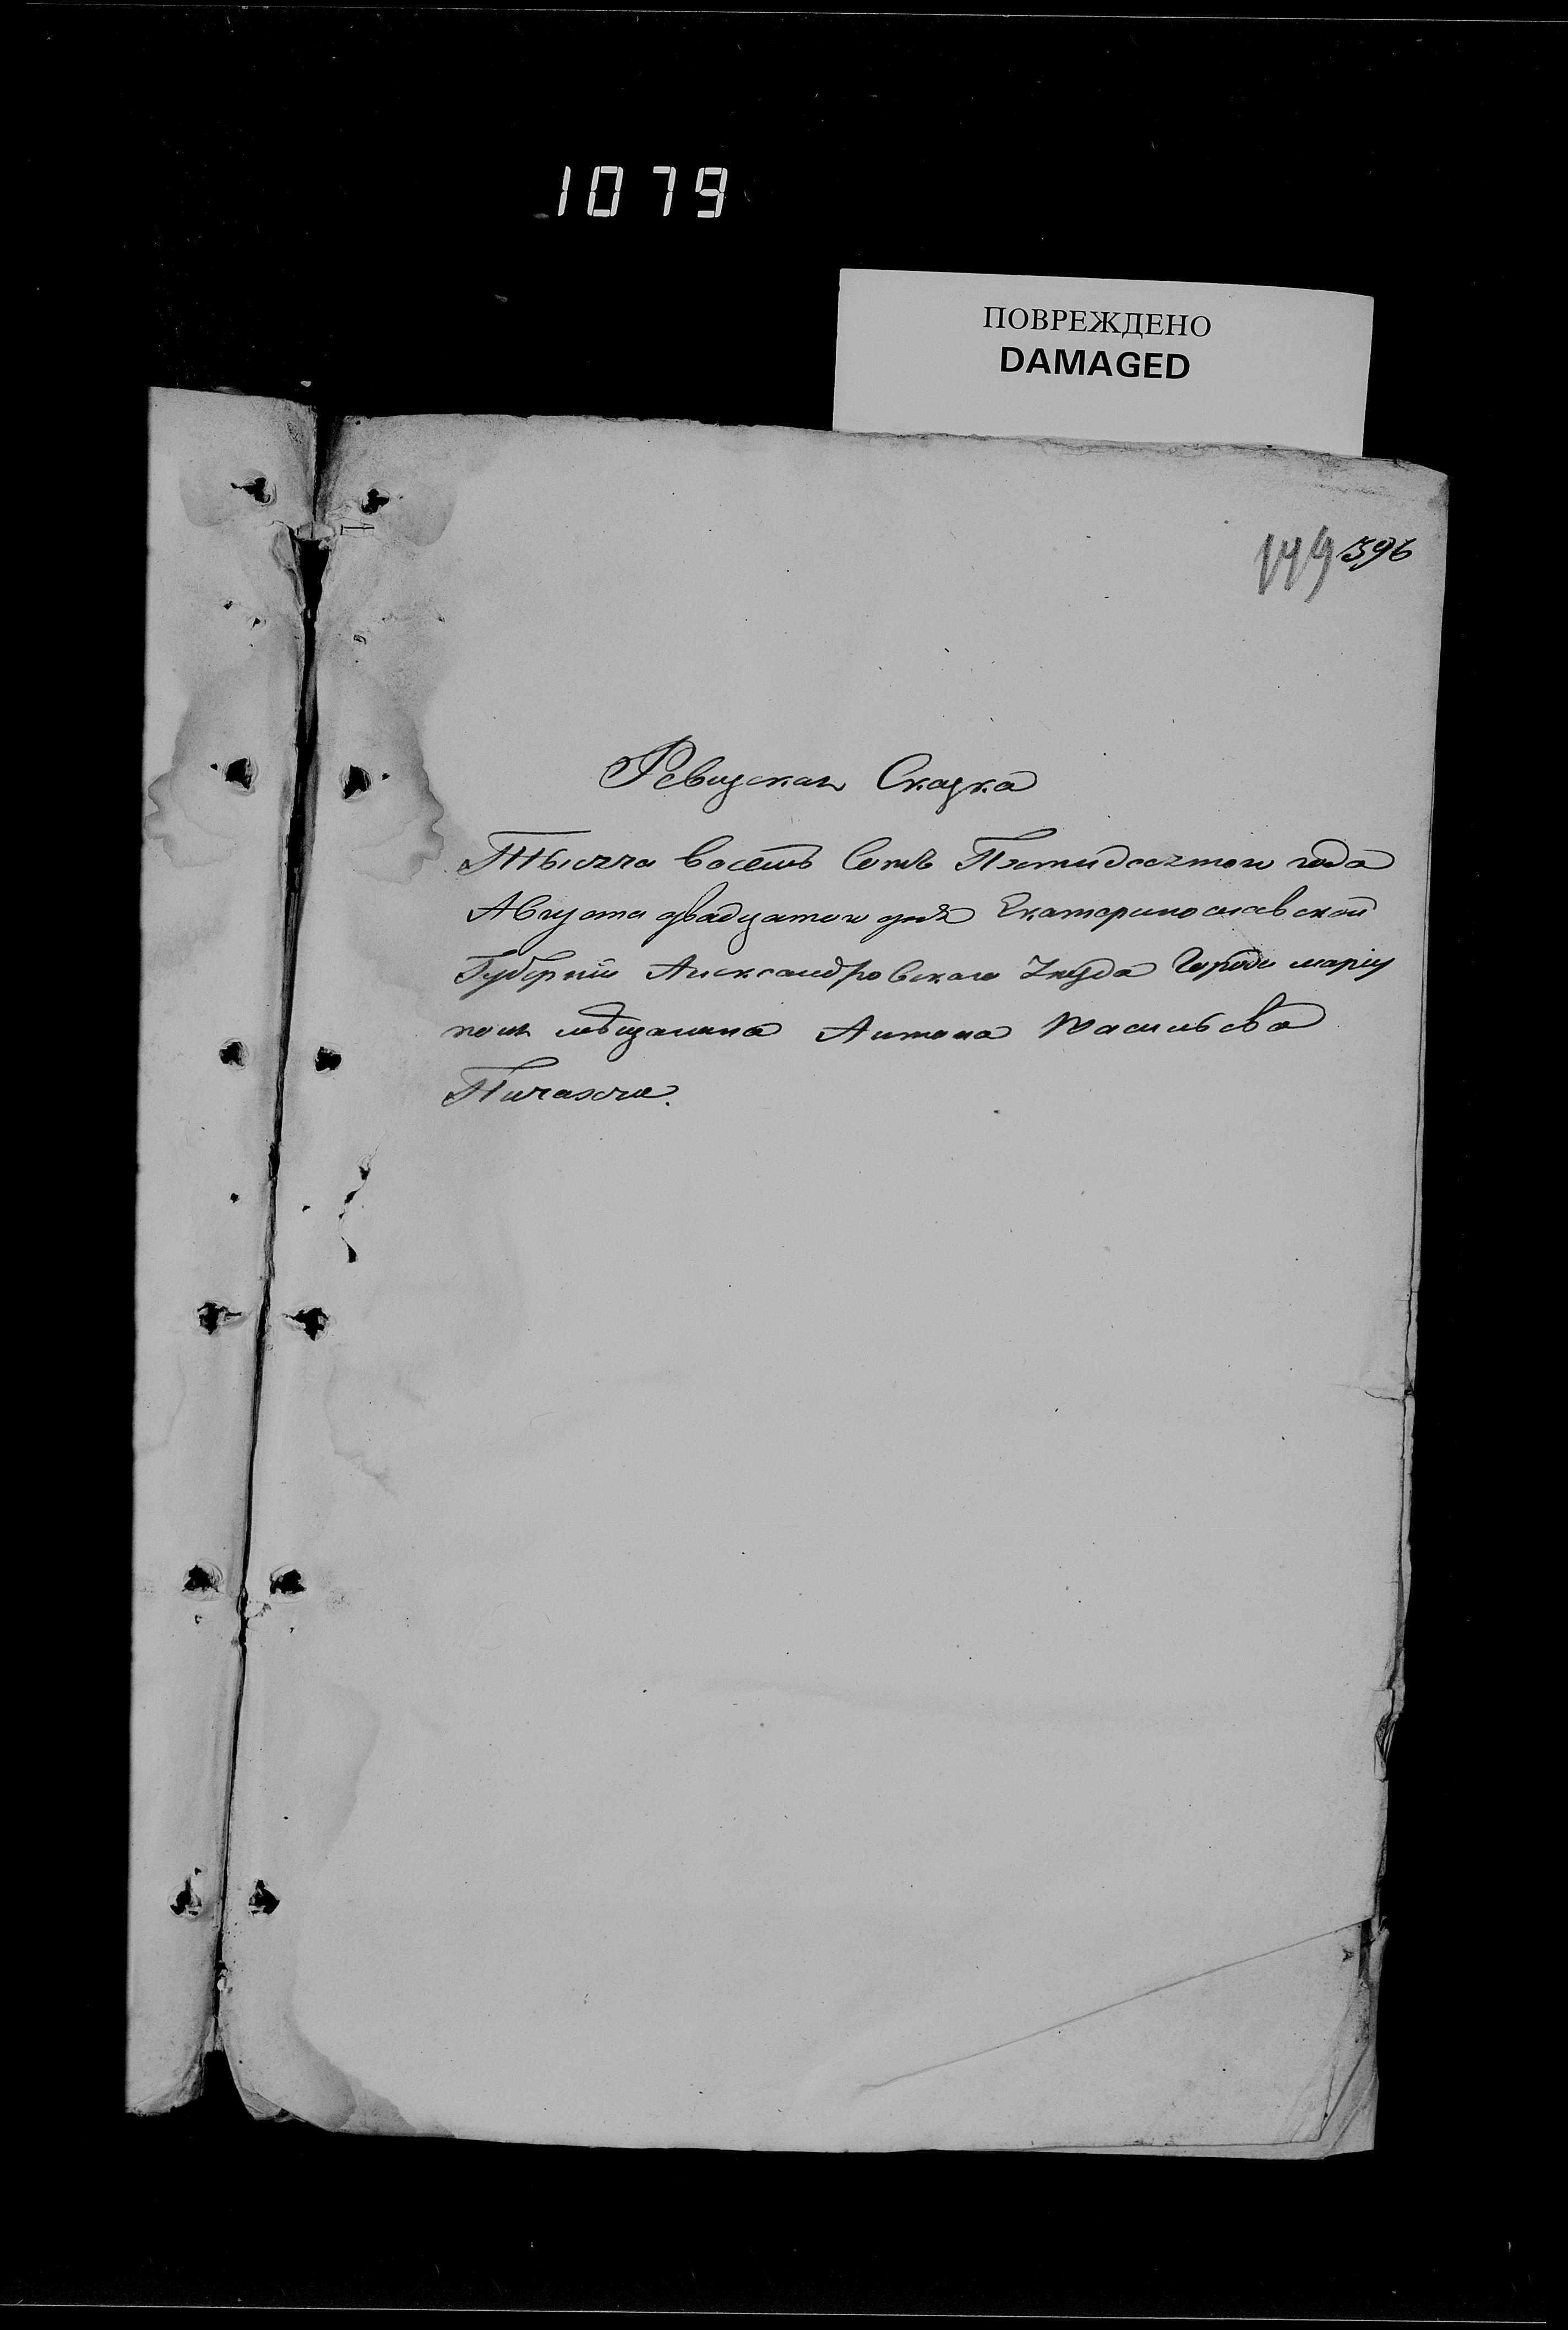 1079
ПОВРЕЖДЕНО
DAMAGED
149 396
Ревизская Сказка
Тысяча восемь Сотъ Пятидесятого года
Августа двадцатого дня Екатеринославской
Губерніи Александровского Уезда Города маріу
поля мѣщанина Антона Васильева